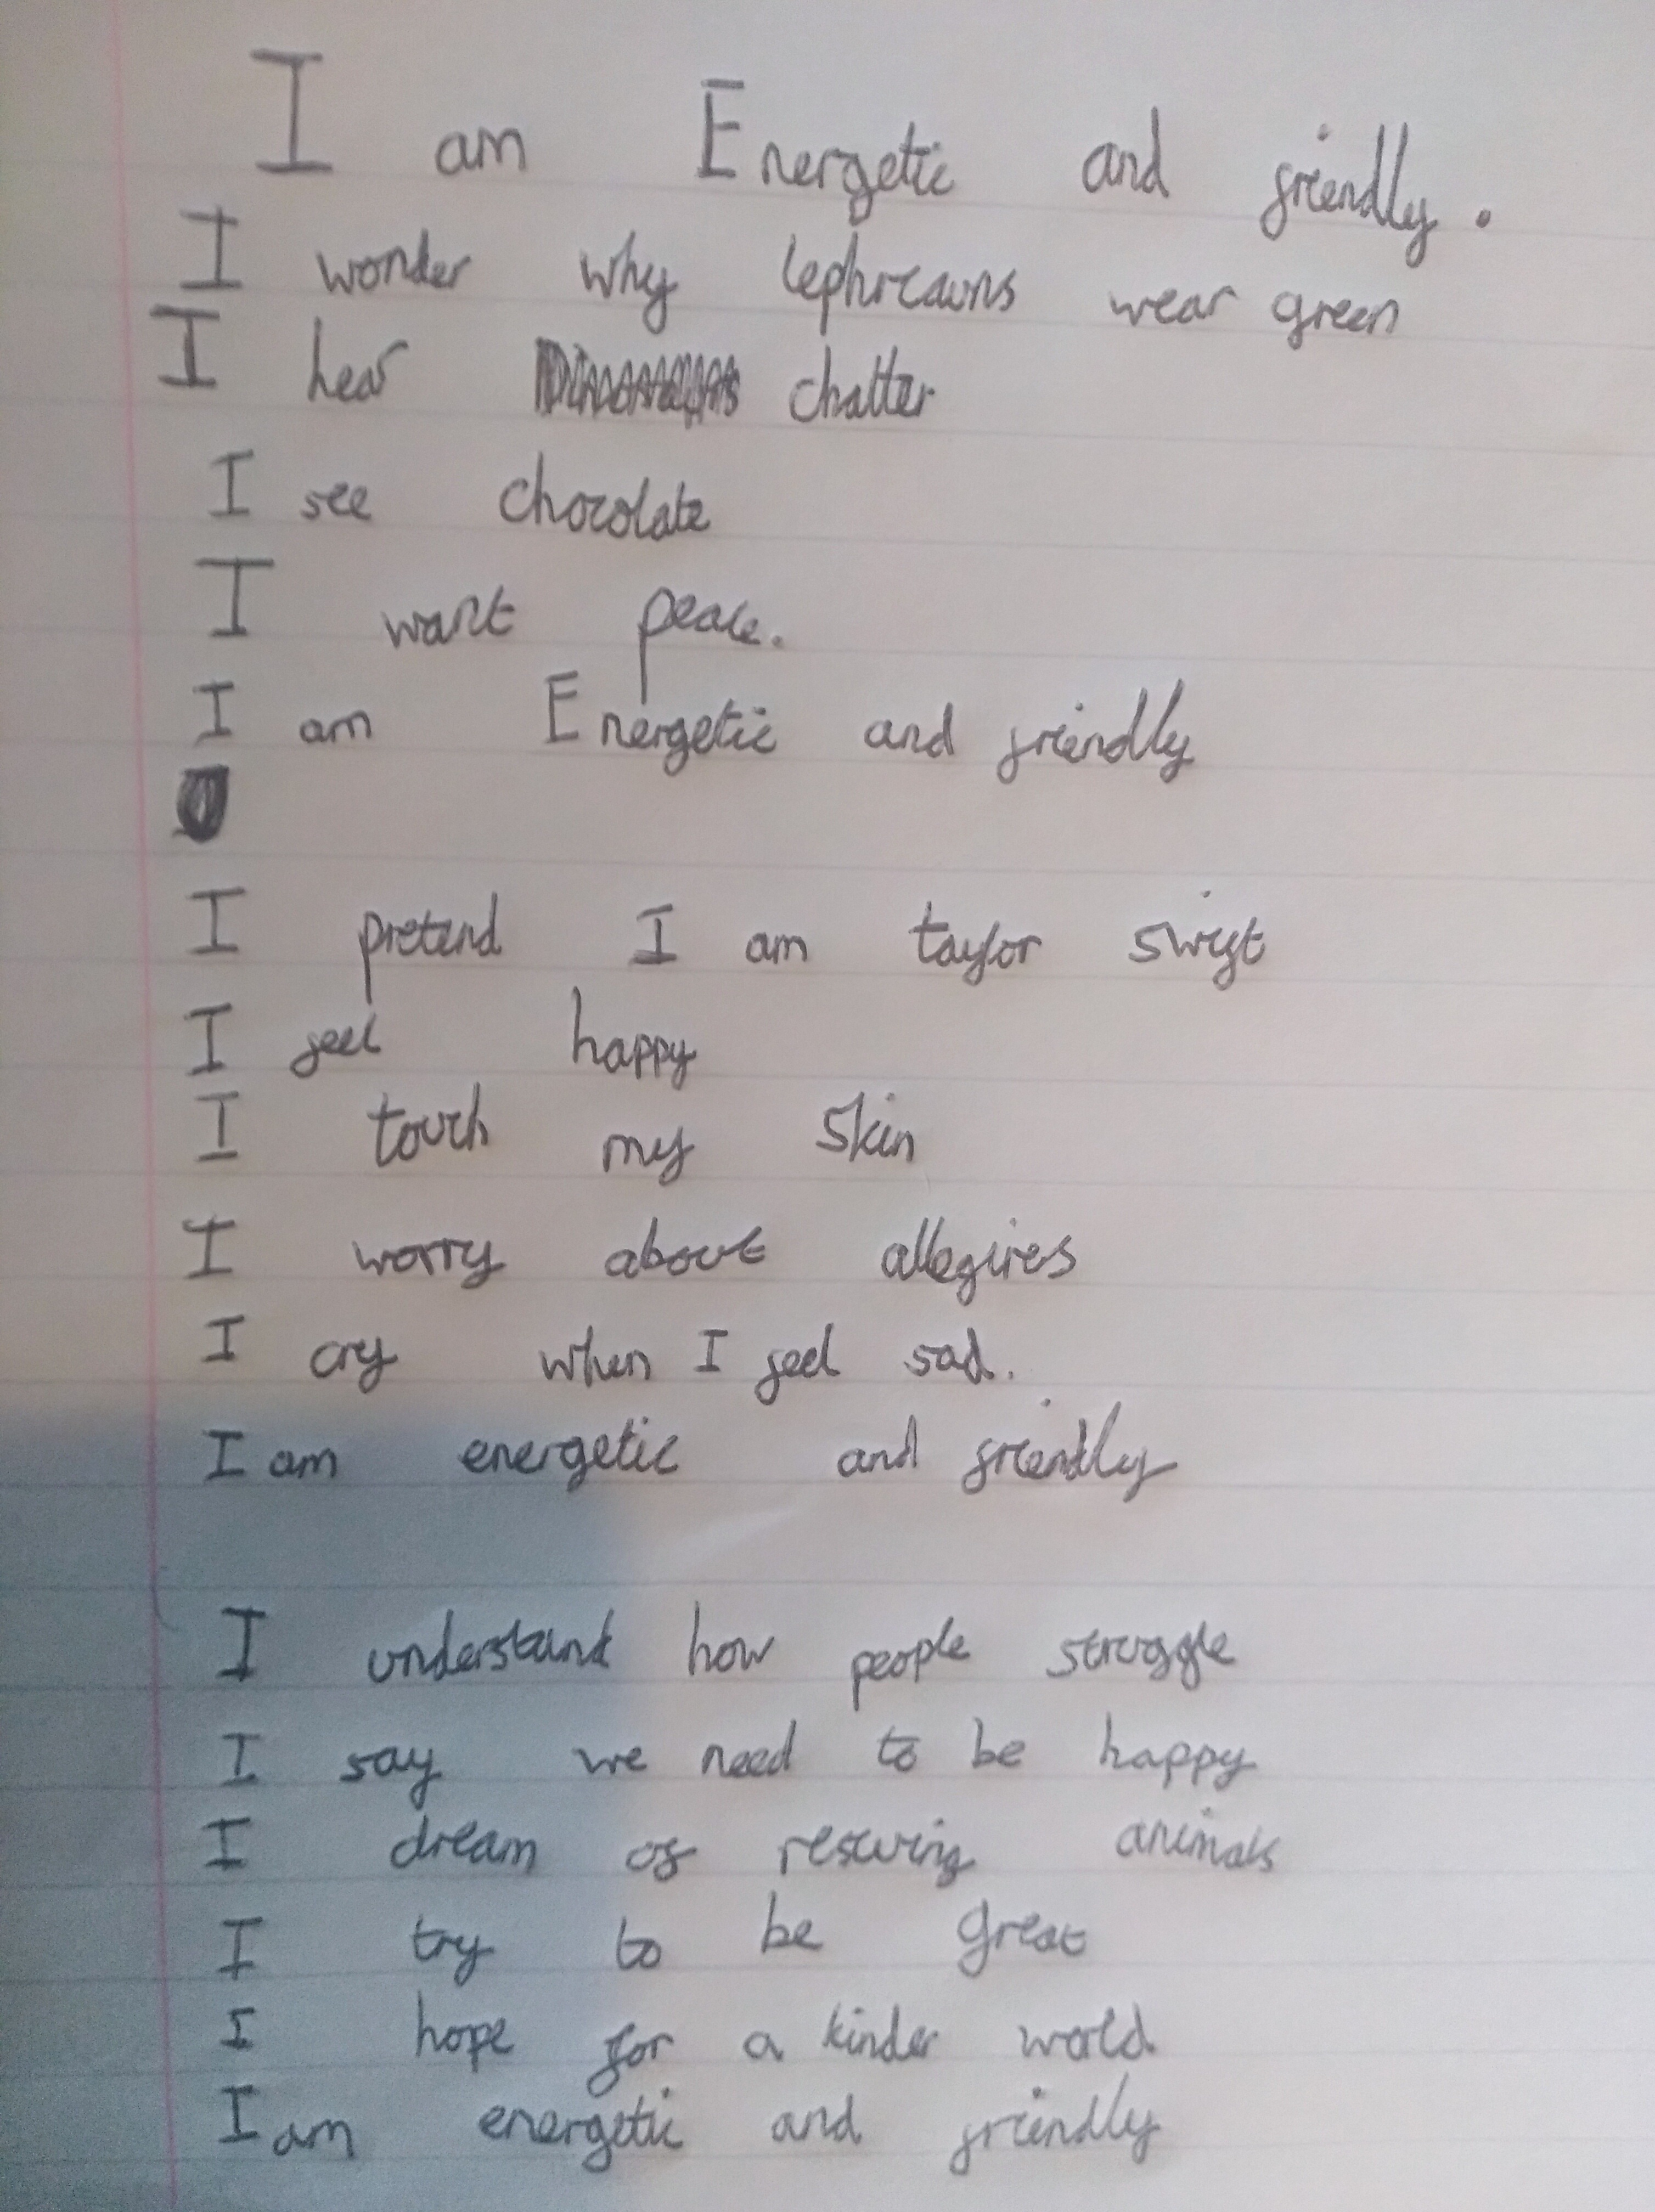 I am Energetic and friendly.
I wonder why lephrcauns wear green
I hear chatter
I see chocolate
I want peace.
I am Energetic and friendly
I pretend I am taylor swift
I feel happy
I touch my skin
I worry about allegires
I cry when I feel sad.
I am energetic and friendly
I understand how people struggle
I say we need to be happy
I dream of rescuing animals
I try to be great
I hope for a kinder world
I am energetic and friendly